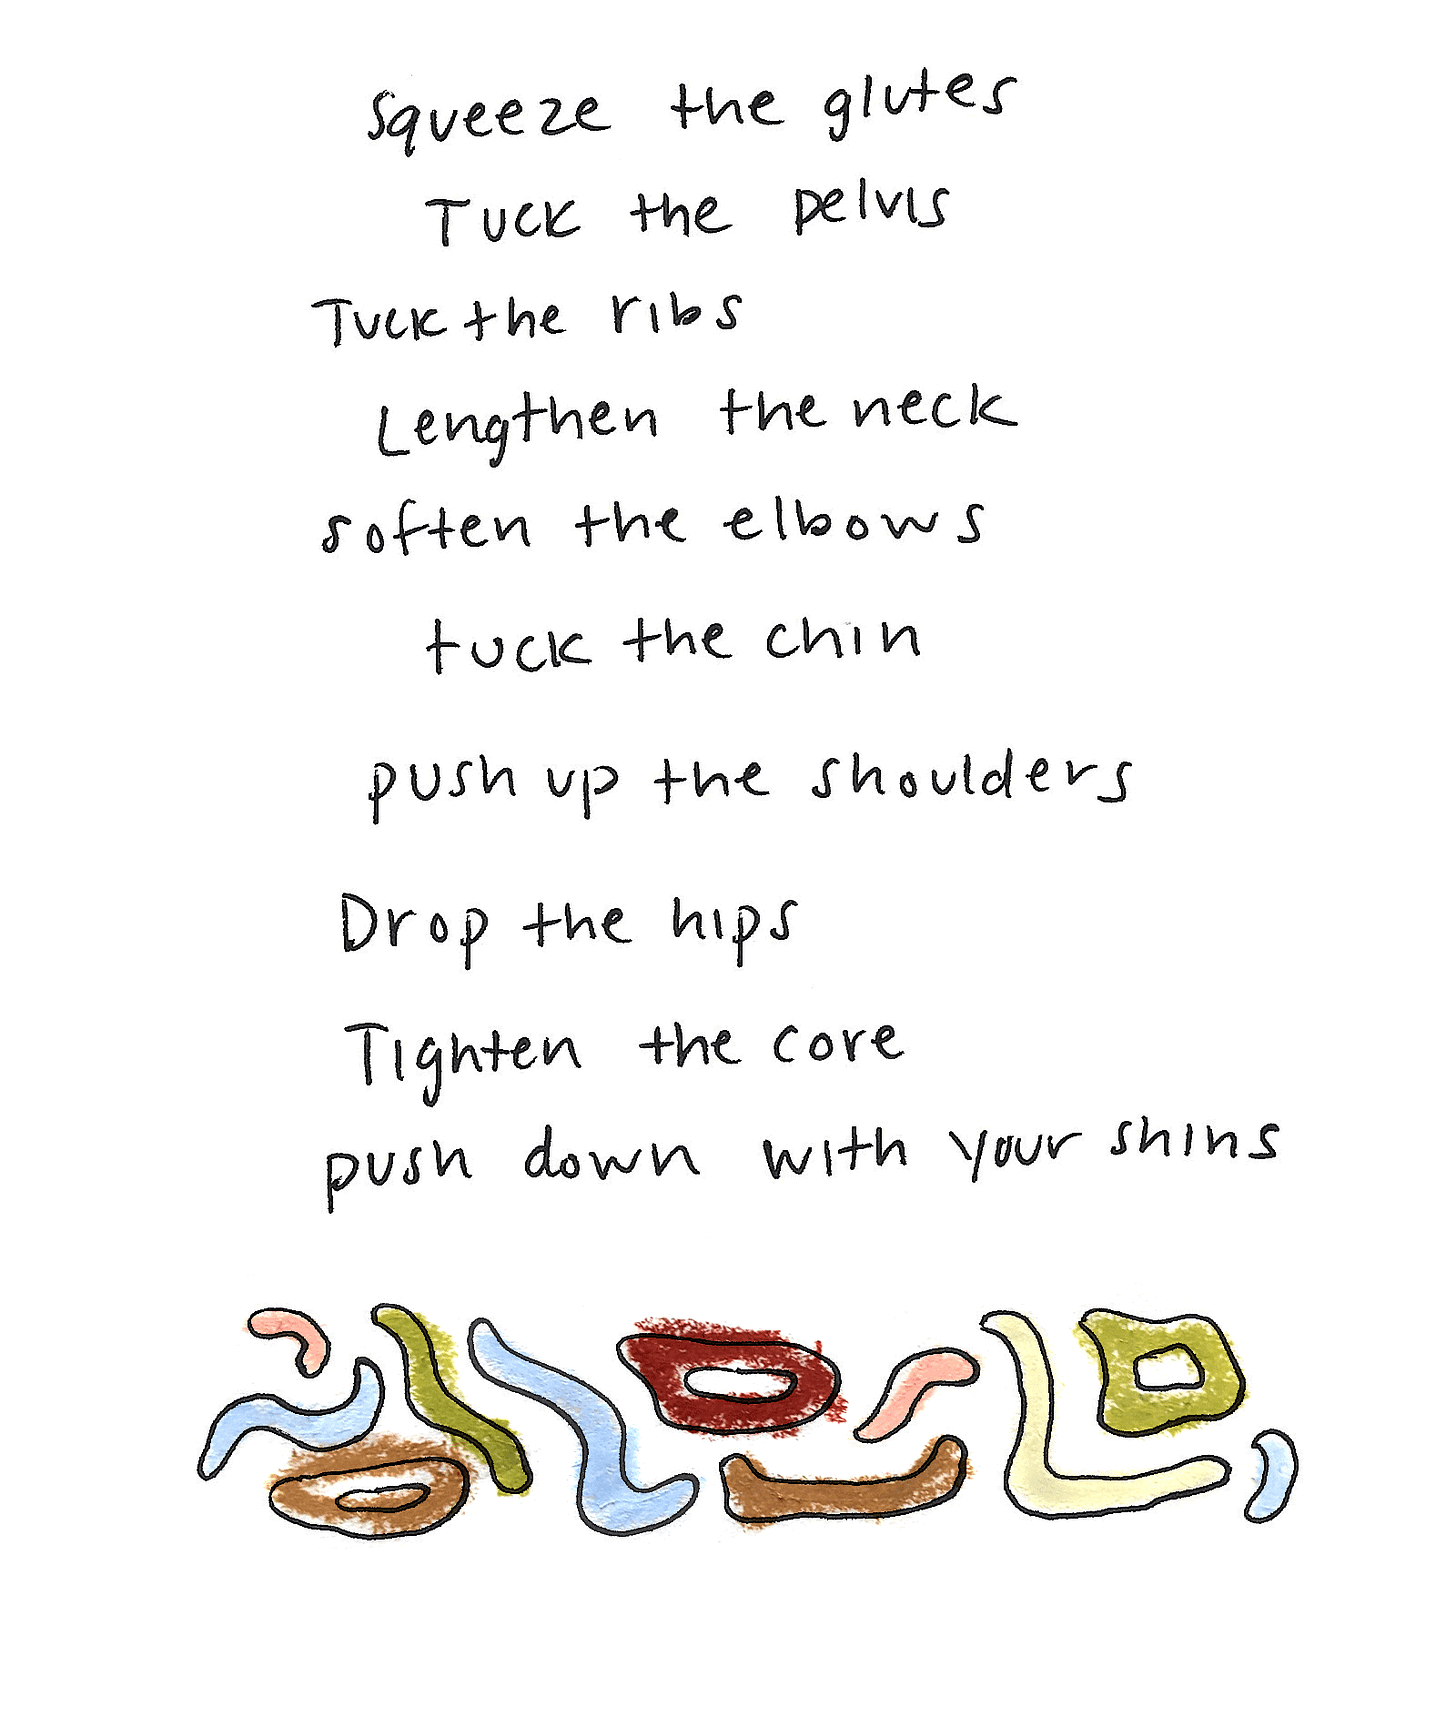 Squeeze the glutes
Tuck the pelvis
Tuck the ribs
Lengthen the neck
soften the elbows
tuck the chin
push up the shoulders
Drop the hips
Tighten the core
push down with your shins